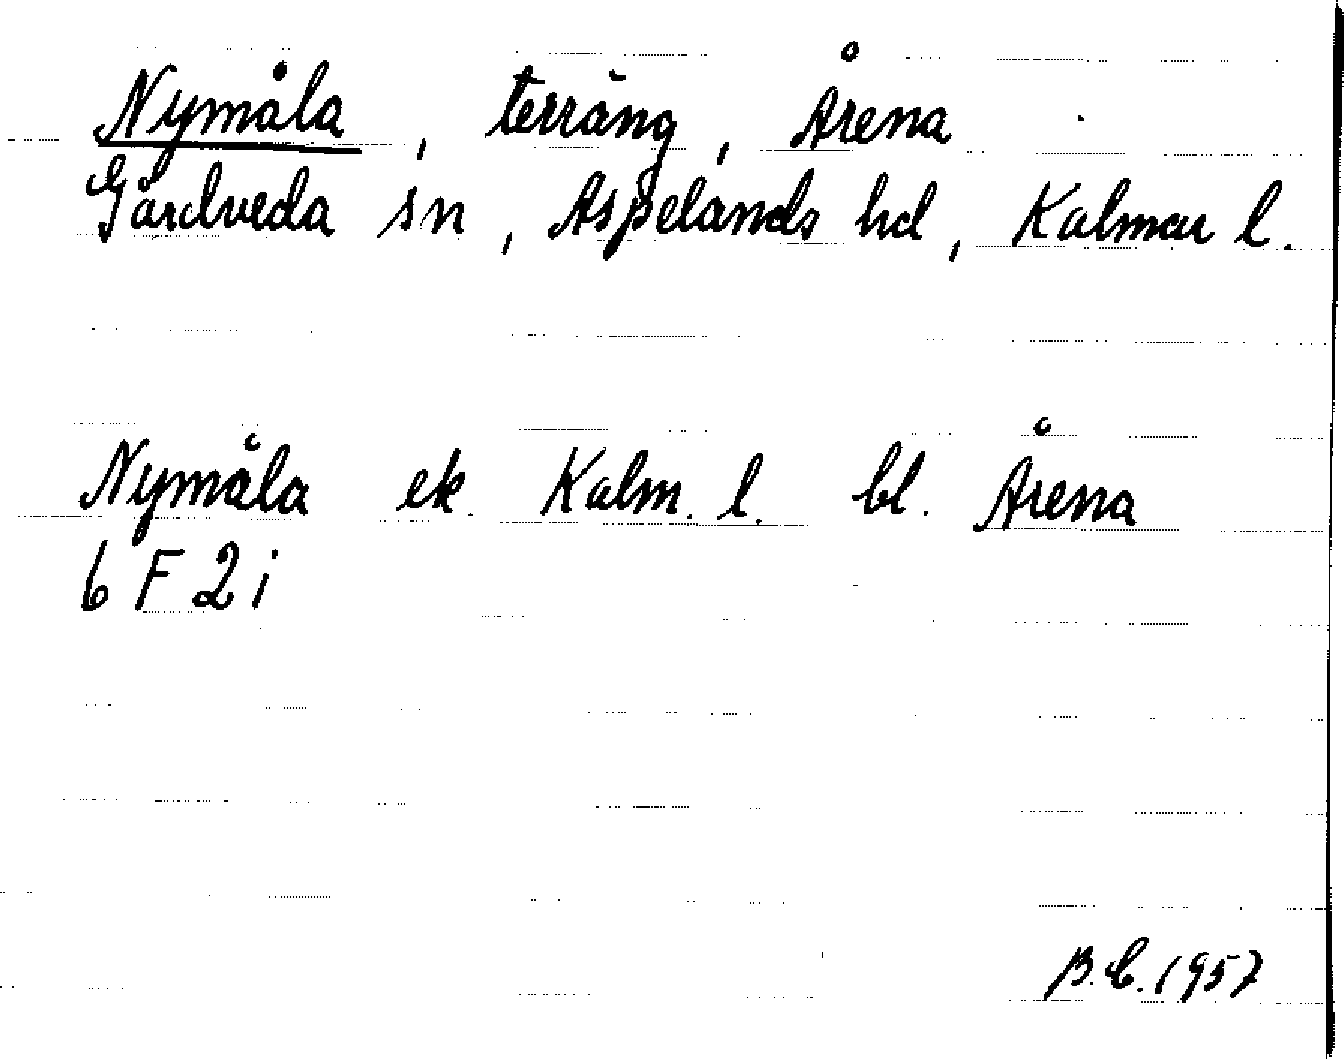 Nymåla, terräng, Årena
Gårdveda sn, Aspelands hd, Kalmar l.
Nymåla ek. Kalm. l. bl. Årena
6 F 2 i
B.C. 1957